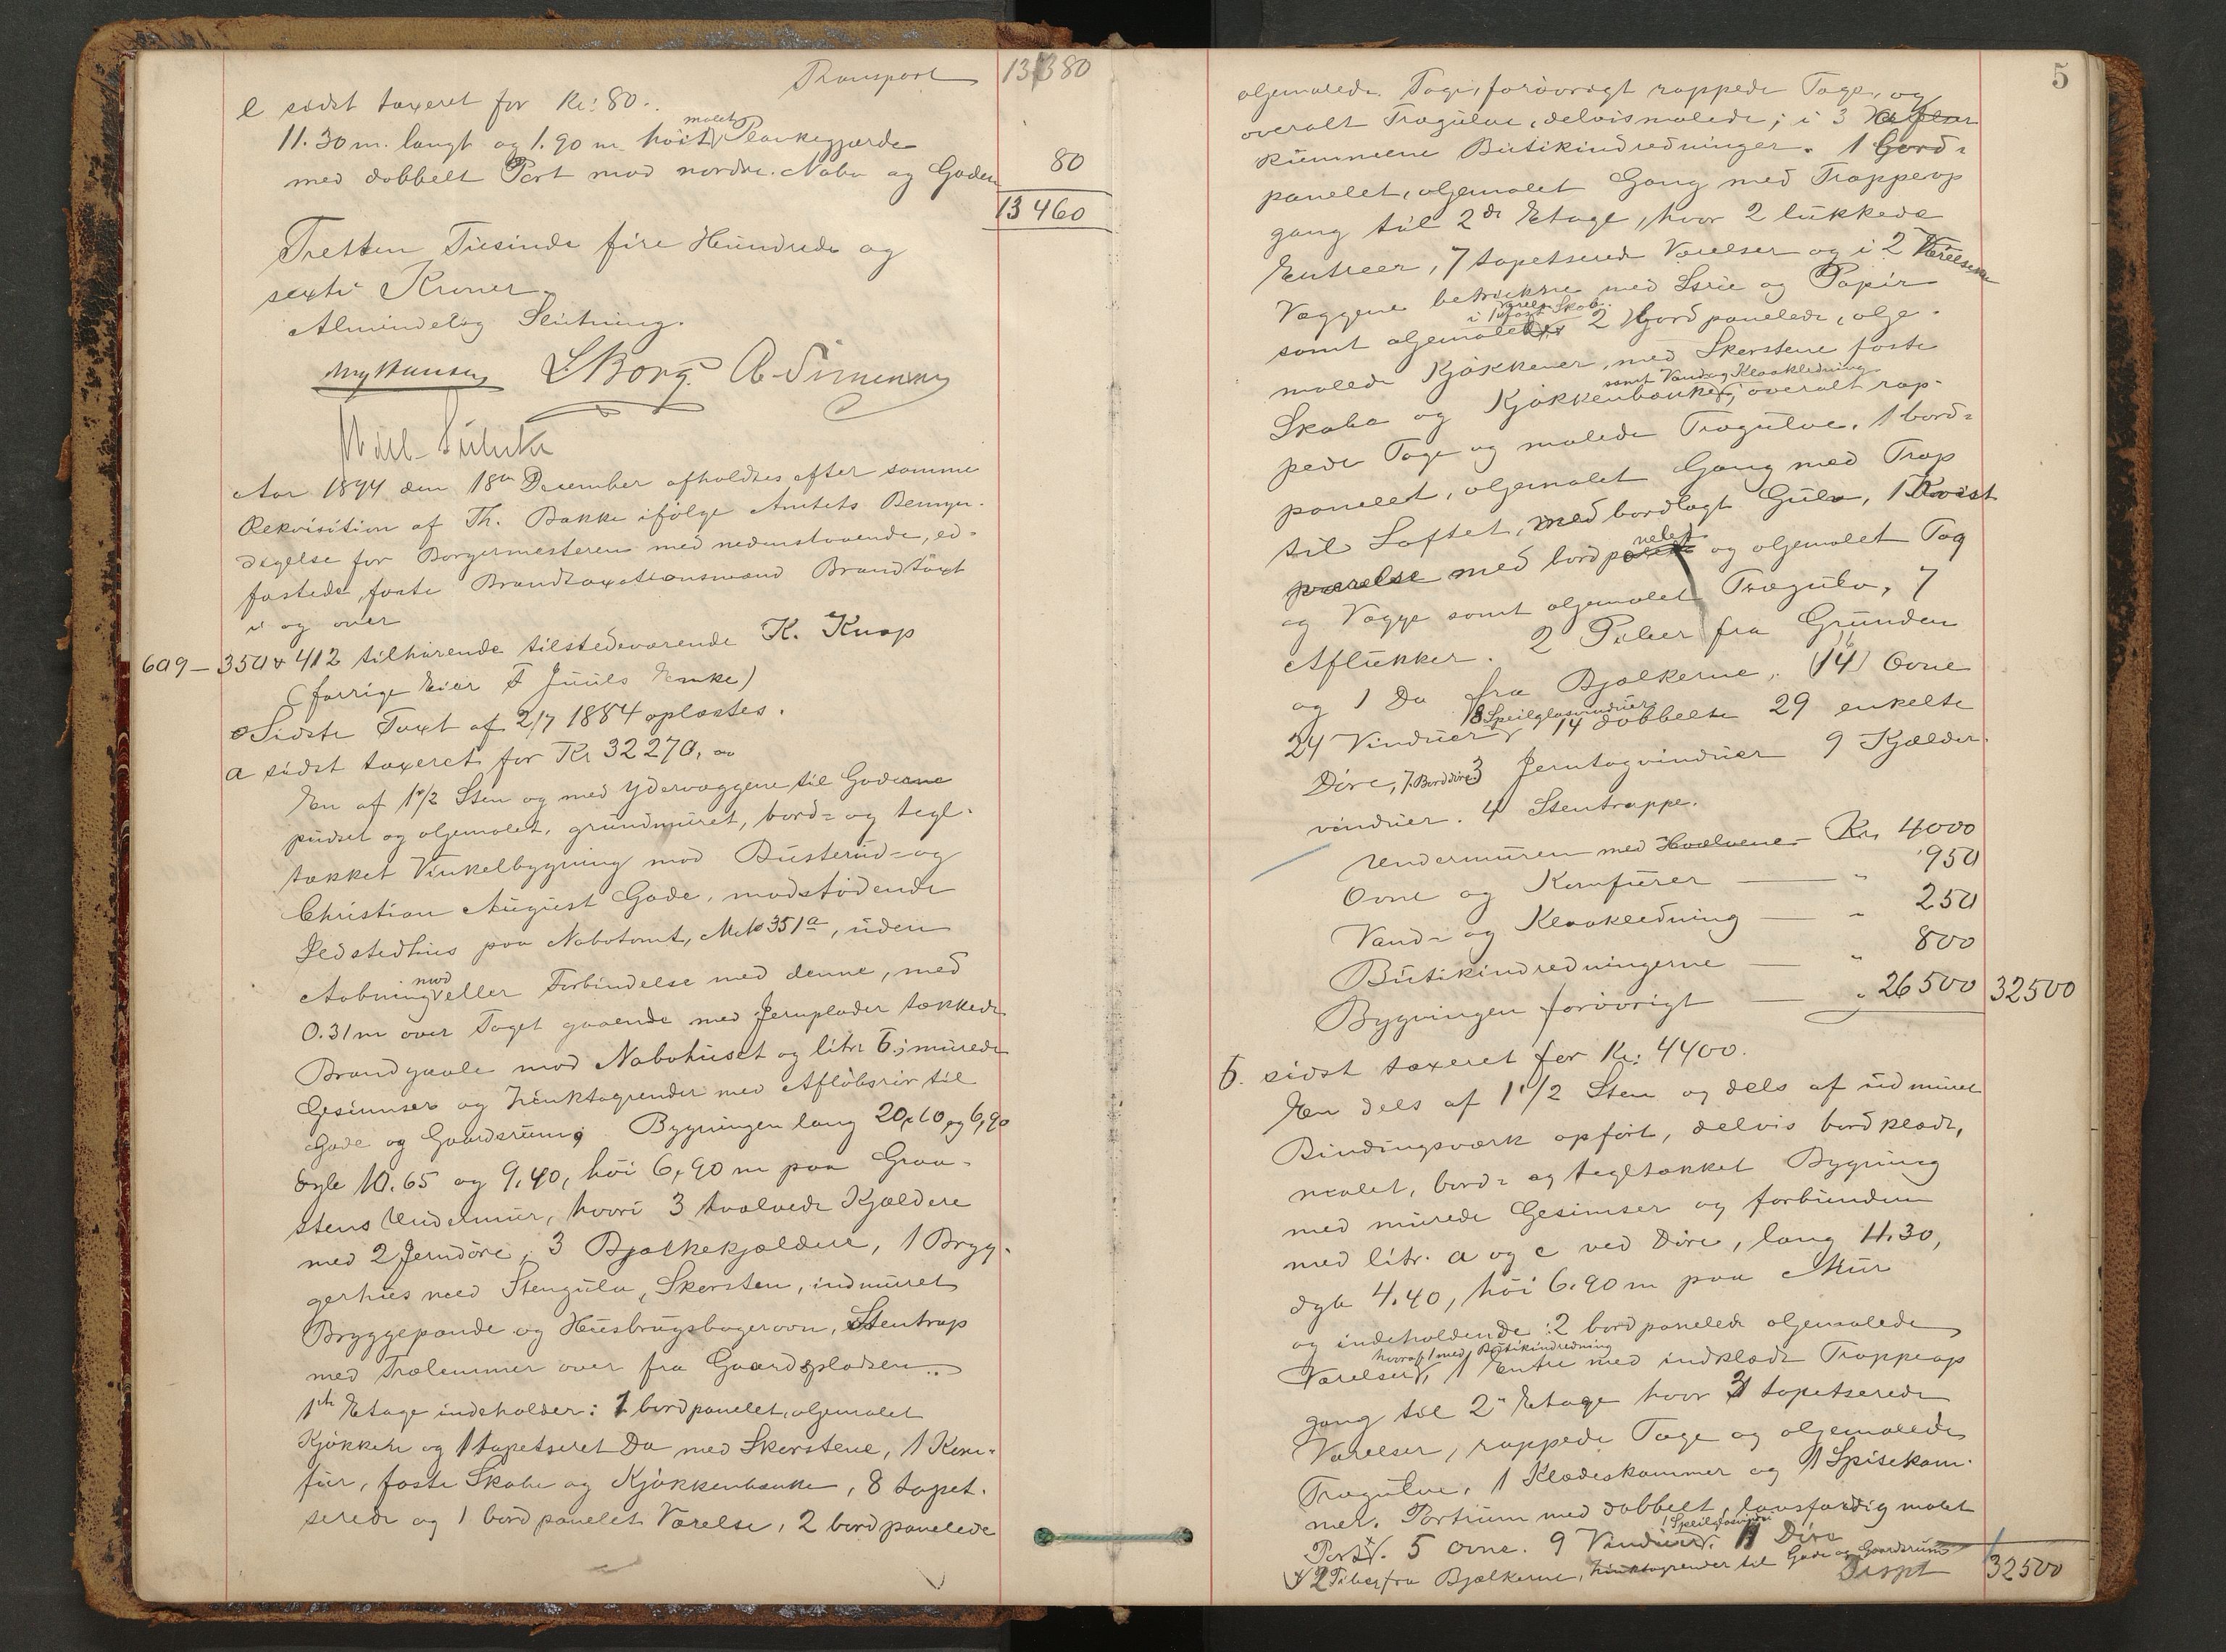 Transport 13380
e sidst taxeret for Kr: 80.
11.30 m. langt og 1.90 m høit malet Plankegjærde
med dobbelt Port mod nordre Nabo og Gaden 80
13460
Tretten Tusinde fire Hundrede og
sexti Kroner.
Almindelig Slutning.
L Borg. A. Simensen
Aar 1894 den 18de December afholdtes efter samme
Rekvisition af Th. Bakke ifølge Amtets Bemyn-
digelse for Borgermesteren med nedenstaaende, ed-
fæstede, faste Brandtaxationsmænd Brandtaxt
i og over
609 — 350 & 412 tilhørende tilstedeværende K. Knap
(forrige Eier F Juuls Enke)
Sidste Taxt af 2/7 1884 oplæstes.
a sidst taxeret for Kr 32270, oo
En af 1 1/2 Sten og med Ydervæggene til Gaderne
pudset og oljemalet, grundmuret, bord- og tegl-
tækket Vinkelbygning mod Busterud- og
Christian August Gade, modstødende
Ildstedhus paa Nabotomt, Mtr 351a, uden
Aabning mod eller Forbindelse med denne, med
0.31 m over Taget gaaende med Jernplader tækkede
Brandgavle mod Nabohuset og litr b; murede
Gesimser og Zinktagrender med Afløbsrør til
Gade og Gaardsrum; Bygningen lang 20,10 og 6,90
dyb 10.65 og 9,40, høi 6,90 m paa Graa-
stens Undermur, hvori 3 hvælvede Kjældere
med 2 Jerndøre, 3 Bjælkekjældere, 1 Bryg-
gerhus med Stengulv, Skorsten, indmuret
Bryggepande og Husbrugsbagerovn, Stentrap
med Trælemmer over fra Gaardspladsen.
1ste Etage indeholder: 1 bordpanelet, oljemalet
Kjøkken og 1 tapetseret Do med Skorstene, 1 Kom-
fur, faste Skabe og Kjøkkenbænke, 8 tapet-
serede og 1 bordpanelet Værelse, 2 bordpanelede
5
oljemalede Tage, forøvrigt rappede Tage, og
overalt Trægulve, delvis malede; i 3 af
Rummene Butikindredninger. 1 bord-
panelet, oljemalet Gang med Trappeop
gang til 2de Etage, hvor 2 lukkede
Entreer, 7 tapetserede Værelser og i 2 Værelser
Væggene betrukne med Strie og Papir
i 1 Værelse fast Skab.
samt oljemalede 2 bordpanelede, olje-
malede Kjøkkener, med Skorstene faste
samt Vand og Kloakledning
Skabe og Kjøkkenbænke; overalt rap-
pede Tage og malede Trægulve. 1 bord-
panelet, oljemalet Gang med Trap
til Loftet, med bordlagt Gulv, 1 Kvist
værelse med bordpanelet og oljemalet Tag
og Vægge samt oljemalet Trægulv, 7
Aflukker. 2 Piber fra Grunden
og 1 Do fra Bjælkerne. 14 Ovne
24 Vinduer 8 Speilglasvinduer 14 dobbelte 29 enkelte
Døre, 7 Borddøre 3 Jerntagvinduer 9 Kjælder-
vinduer. 4 Stentrappe.
Undermuren med Hvælvene — Kr. 4000
Ovne og Komfurer — " 950
Vand- og Kloakledning — " 250
Butikindredningerne — " 800
Bygningen forøvrigt — " 26500 32500
b. sidst taxeret for Kr: 4400.
En dels af 1 1/2 Sten og dels af udmuret
Bindingsværk opført, delvis bordklædt,
malet, bord- og tegltækket Bygning
med murede Gesimser og forbunden
med litr. a og c ved Døre, lang 11.30,
dyb 4.40, høi 6.90 m paa Mur
og indeholdende: 2 bordpanelede oljemalede
hvoraf 1 med Butikindredning
Værelser, 1 Entre med indklædt Trappeop
gang til 2de Etage hvor 3 tapetserede
Værelser, rappede Tage og oljemalede
Trægulve, 1 Klædeskammer og 1 Spisekam-
mer. Portrum med dobbelt, malet
1 Speilglasvindu
Port. 5 Ovne. 9 Vinduer. 11 Døre
2 Piber fra Bjælkerne, Zinktagrender til Gade og Gaardsrum
Trspt 32500